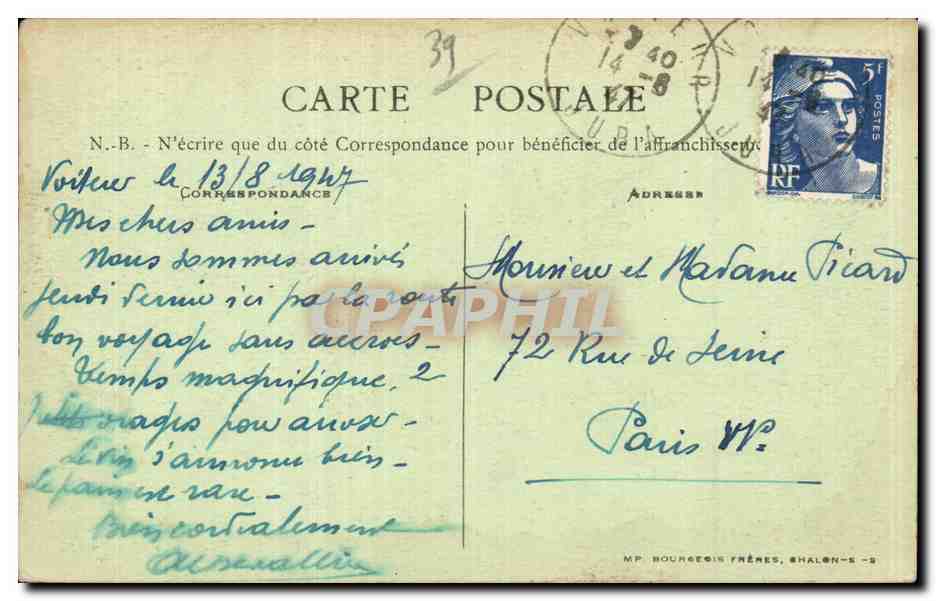 39
CARTE POSTALE
N.-B. - N'écrire que du côté Correspondance pour bénéficier de l'affranchissem
Voiteur le 13/8 1947
CORRESPONDANCE
ADRESSE
Mes chers amis -
Nous sommes arrivés
jeudi dernier ici par la route
bon voyage sans accrocs -
Temps magnifique, 2
petits orages pour arroser -
Le vin s'annonce bien -
Le pain est rare -
Bien cordialement
Monsieur et Madame Picard
72 Rue de Seine
Paris VIe
5F
POSTES
RF
VOITEUR
14 -8
47
JURA
CPAPHIL
MP. BOURGEOIS FRÈRES, CHALON-S-S